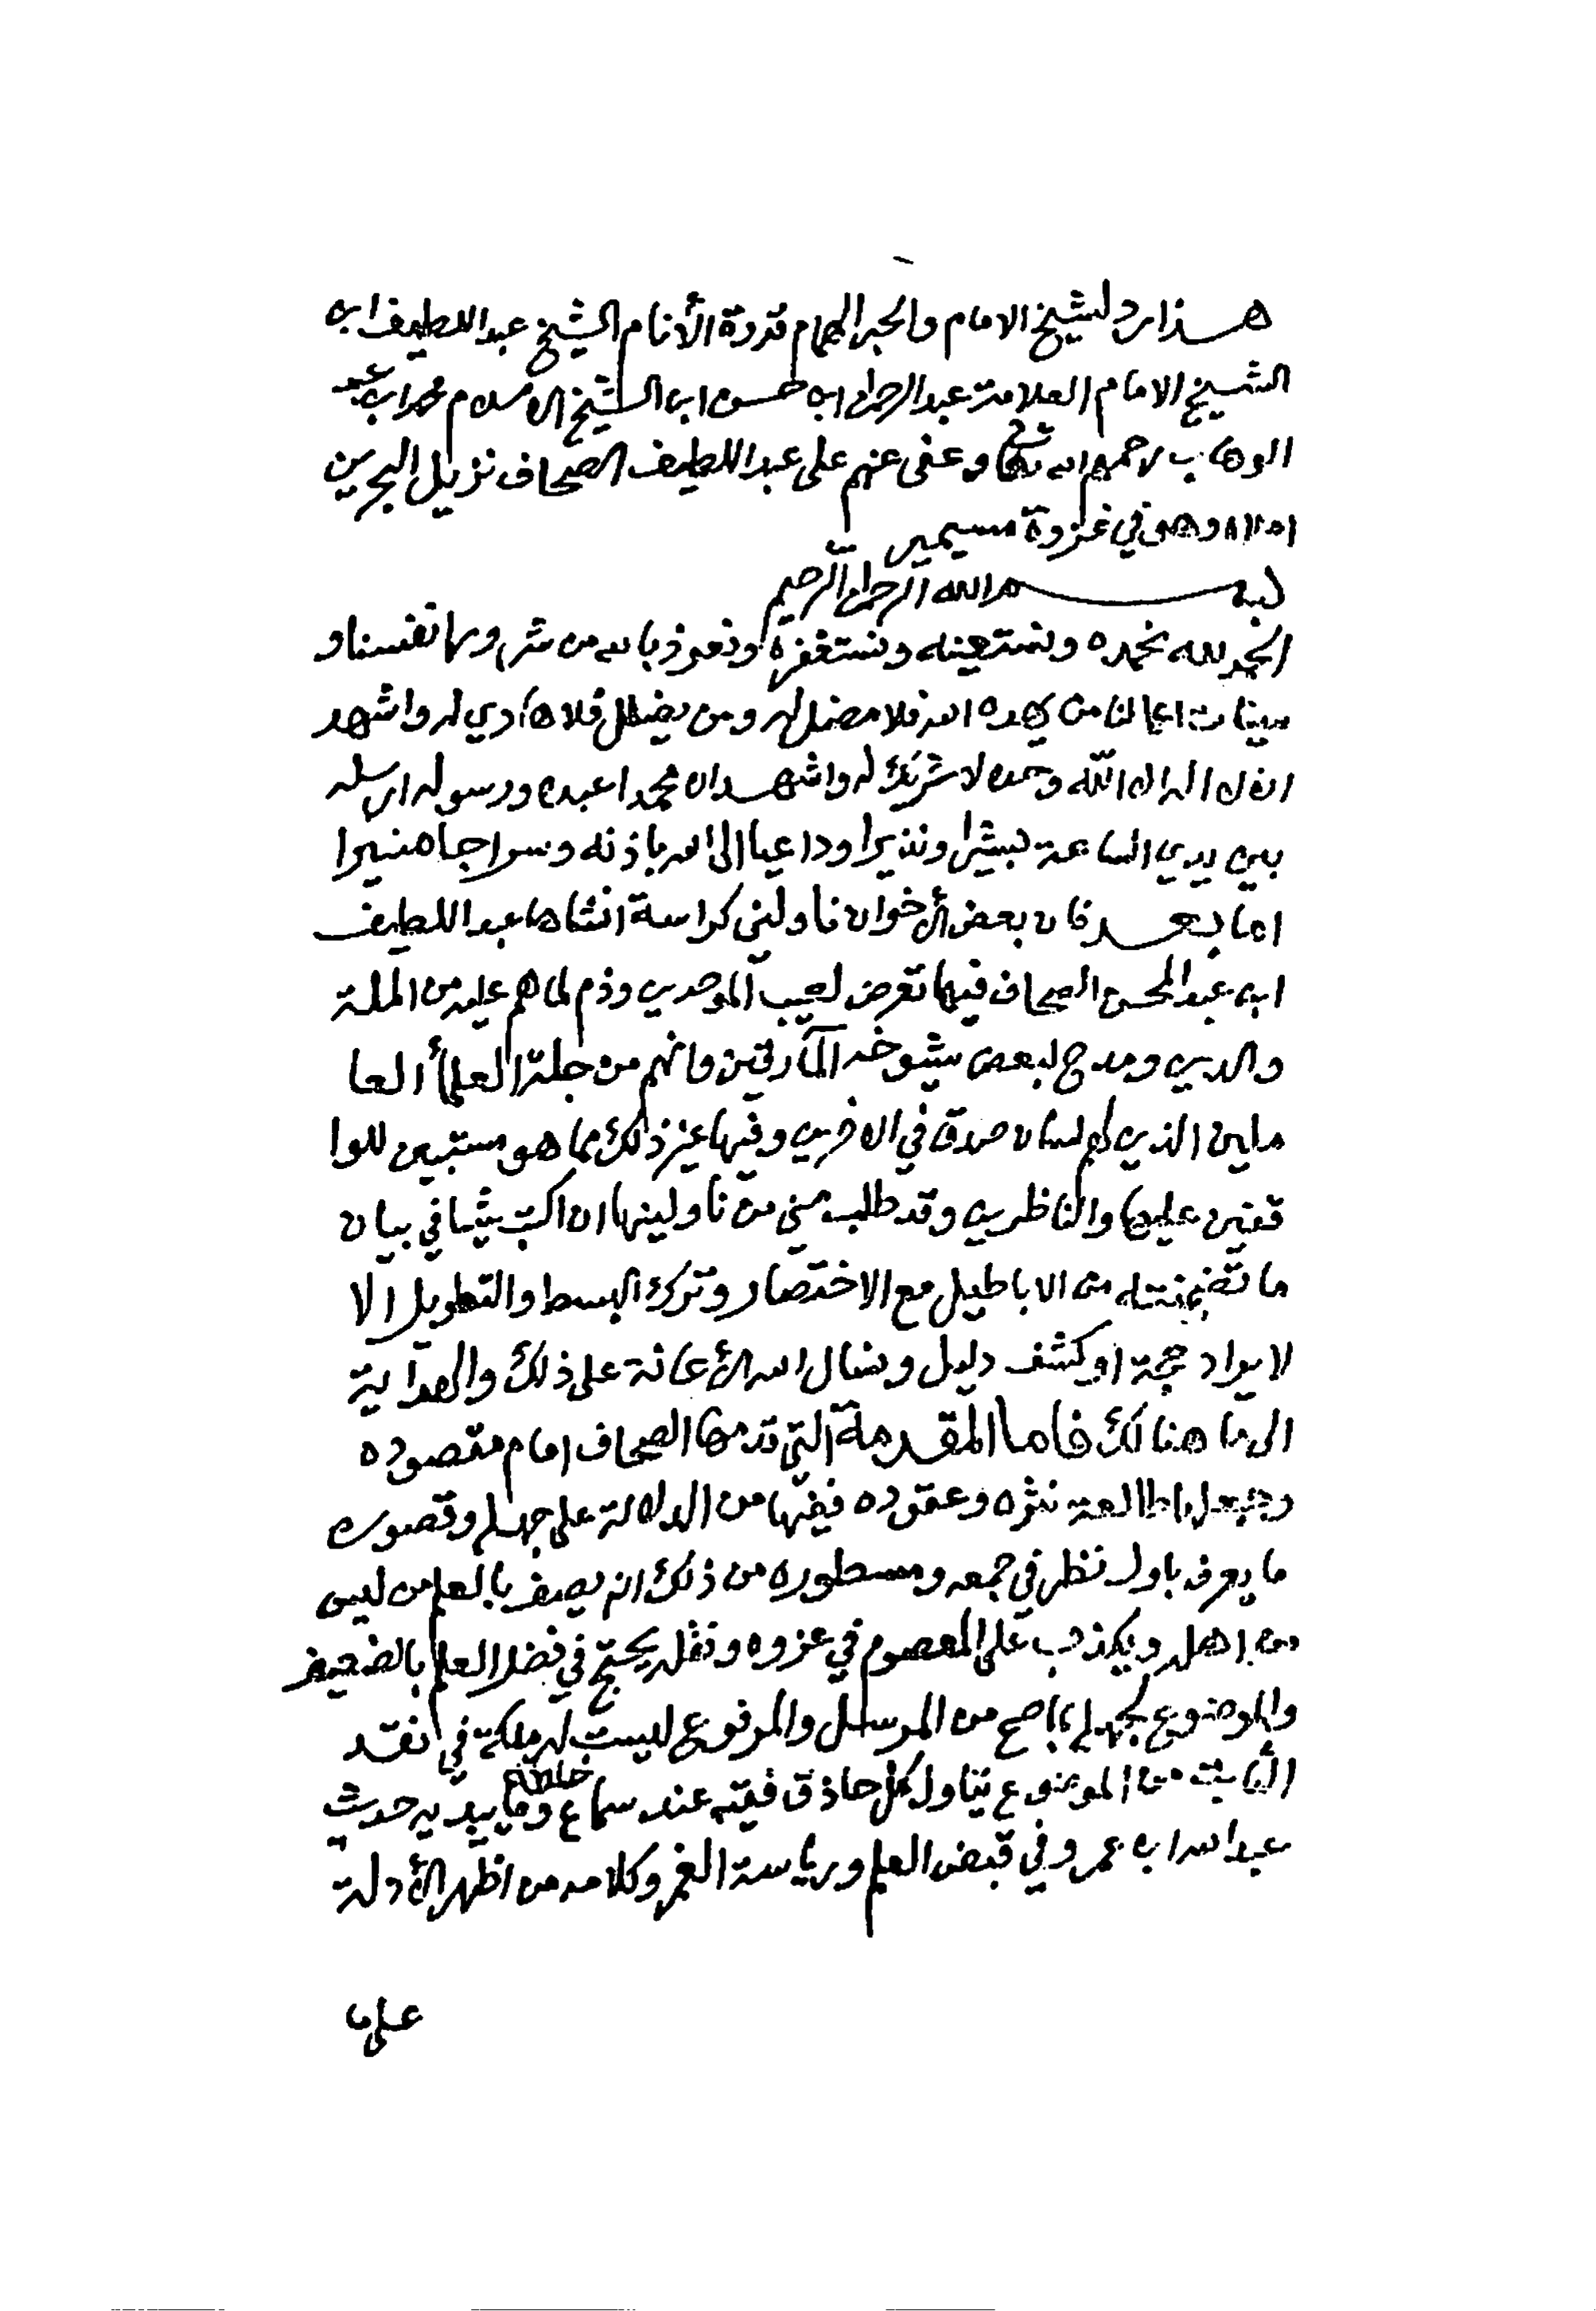 هذا رد لشيخ الامام والحبر الهمام قدوة الأنام الشيخ عبد اللطيف ابن
الشيخ الامام العلامة عبد الرحمن ابن حسن ابن الشيخ الاسلام محمد ابن عبد
الوهاب رحمهم الله تعالى وعفى عنهم على عبد اللطيف الصحاف نزيل البحرين
املاه وهو في غزوة
بسم الله الرحمن الرحيم
الحمد لله نحمده ونستعينه ونستغفره ونعوذ بالله من شرور انفسنا و
سيئات اعمالنا من يهده الله فلا مضل له ومن يضلل فلا هادي له واشهد
ان لا اله الا الله وحده لا شريك له واشهد ان محمدا عبده ورسوله ارسله
بين يدي الساعة بشيرا ونذيرا وداعيا الى الله باذنه وسراجا منيرا
اما بعد فان بعض الأخوان ناولني كراسة انشاها عبد اللطيف
ابن عبد المحسن الصحاف فيها تعرض لعيب الموحدين وذم لما هم عليه من الملة
والدين ومدح لبعض شيوخه المارقين وانهم من جلة العلمأ العا
ملين الذين لهم لسان صدق في الاخرين وفيها غير ذلك مما هو مستبين للوا
قفين عليها والناظرين وقد طلب مني من ناولينها ان اكتب شيا في بيان
ما تضمنته من الاباطيل مع الاختصار وترك البسط والتطويل الا
لايراد حجة او كشف دليل ونسال الله الأعانة على ذلك والهداية
الى ما هنالك فاما المقدمة التي قدمها الصحاف امام مقصوده
وجعلها طالعة نثره وعقوده ففيها من الدلالة على جهله وقصوره
ما يعرف باول نظر في جمعه ومسطوره من ذلك انه يصف بالعلم من ليس
من اهله ويكذب على المعصوم في عزوه ونقله يحتج في فضل العلم بالضعيف
والموضوع لجهله بما صح من المرسل والمرفوع ليست له ملكة في نقد
الثابت من الموضوع يتناول كل حاذق فقيه عند سماع خطأه وما يبديه حديث
عبد الله ابن عمرو في قبض العلم ورياسة الغمر وكلامه من اظهر الأدلة
على ما